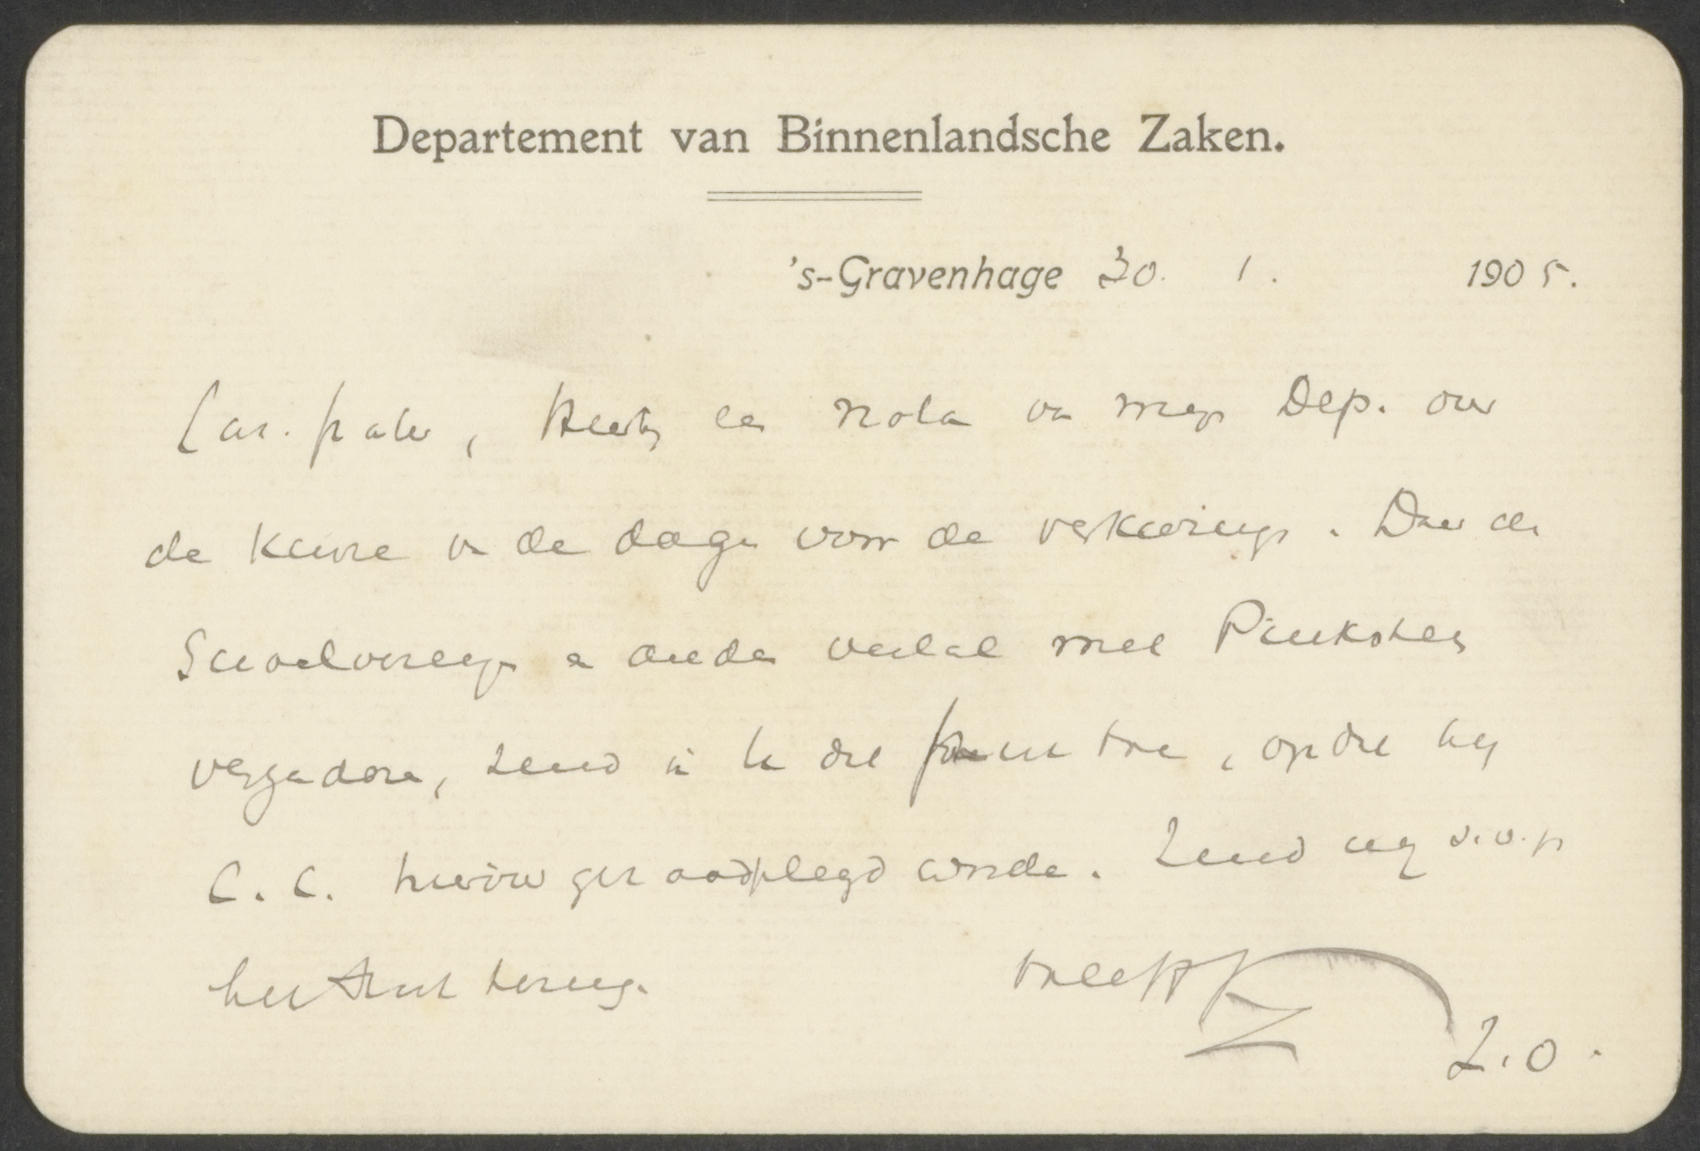 Departement van Binnenlandsche Zaken.
's-Gravenhage 30. 1. 1905.
Car. frater, een nota van mijn Dep. over
de keuze van de dagen voor de verkiezingen. Daar de
Schoolvereenig en ander veelal met Pinksteren
vergaderen, zend ik U die, opdat bij
C. C. hierover geraadpleegd worde. Zend mij s.v.p
het stuk terug.
t.
Z.O.